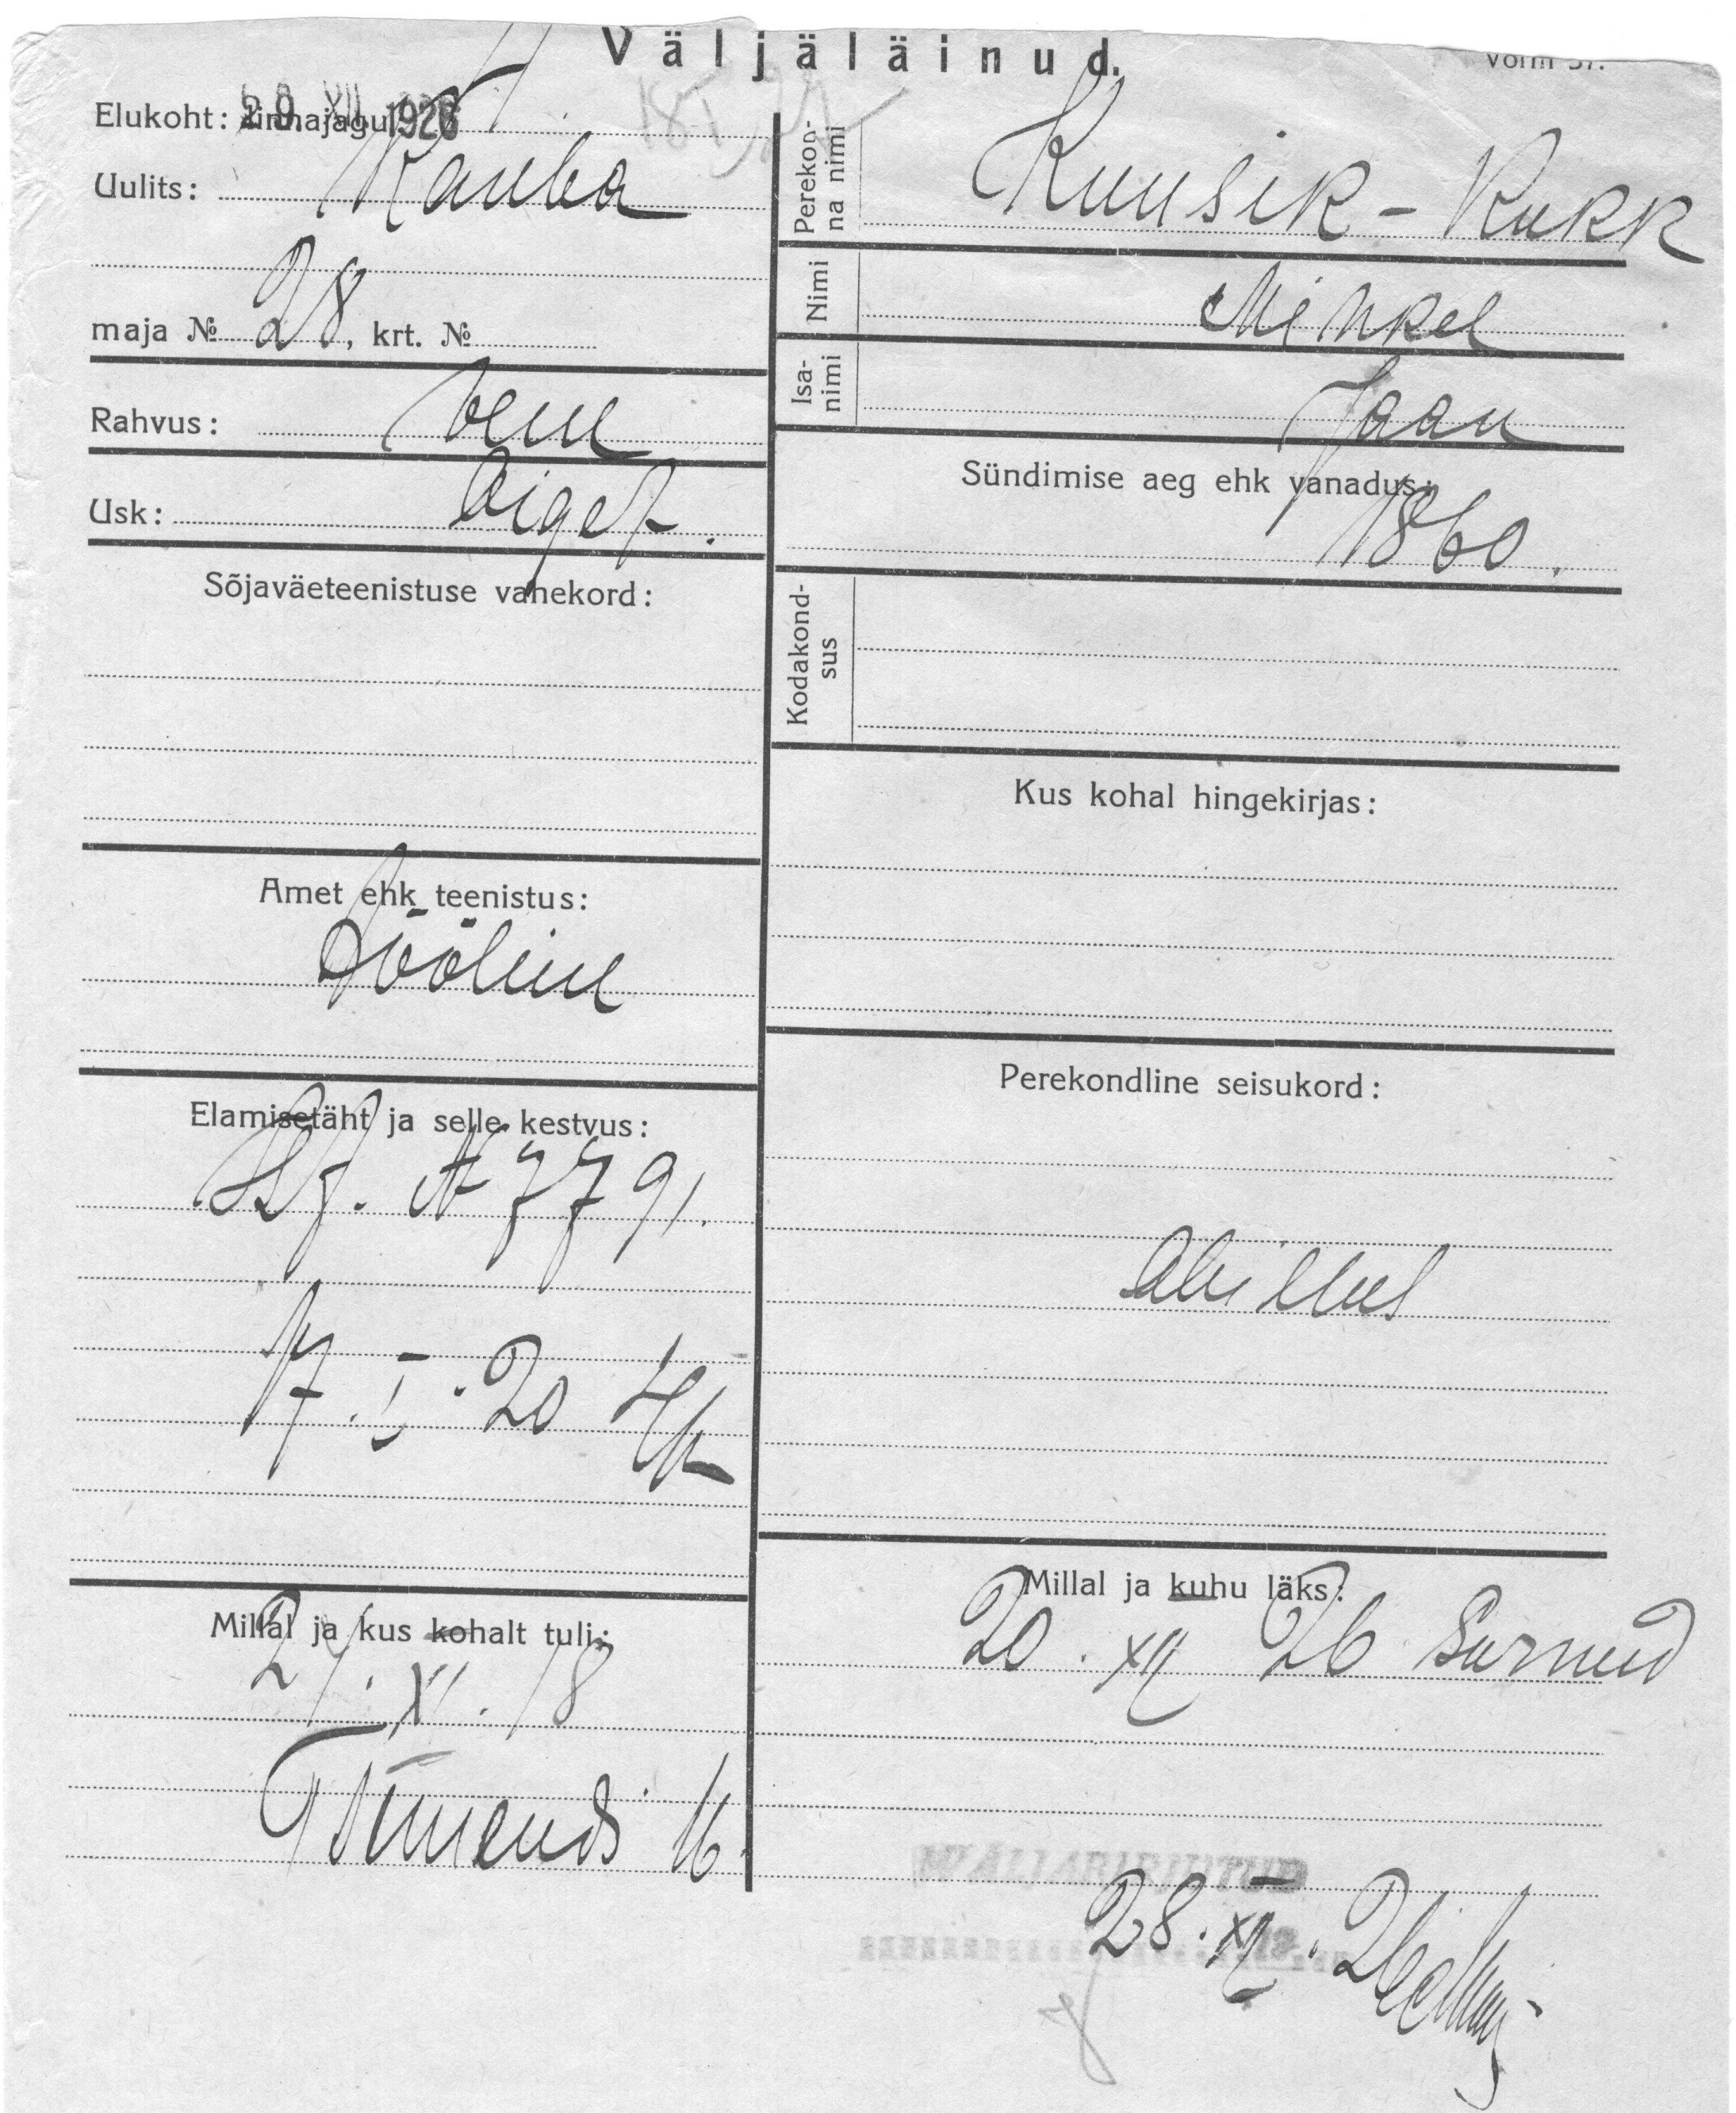 Väljäläinud.
Vorm 37.
Elukoht: linnajagu 1926
Uulits: Kauba
maja № 28, krt. №
Rahvus: Vene
Usk: õiget.
Sõjaväeteenistuse vahekord:
Amet ehk teenistus:
Tööline
Elamisetäht ja selle kestvus:
A 7791.
17. I. 20
Millal ja kus kohalt tuli:
21. XI. 18
16.
Perekon-
na nimi
Kuusik-Kukk
Nimi
Mihkel
Isa-
nimi
Jaan
Sündimise aeg ehk vanadus:
1860.
Kodakond-
sus
Kus kohal hingekirjas:
Perekondline seisukord:
abielus
Millal ja kuhu läks:
20. XII 26 Surnud
VÄLJAKIRJUTUD
28. XII. 26